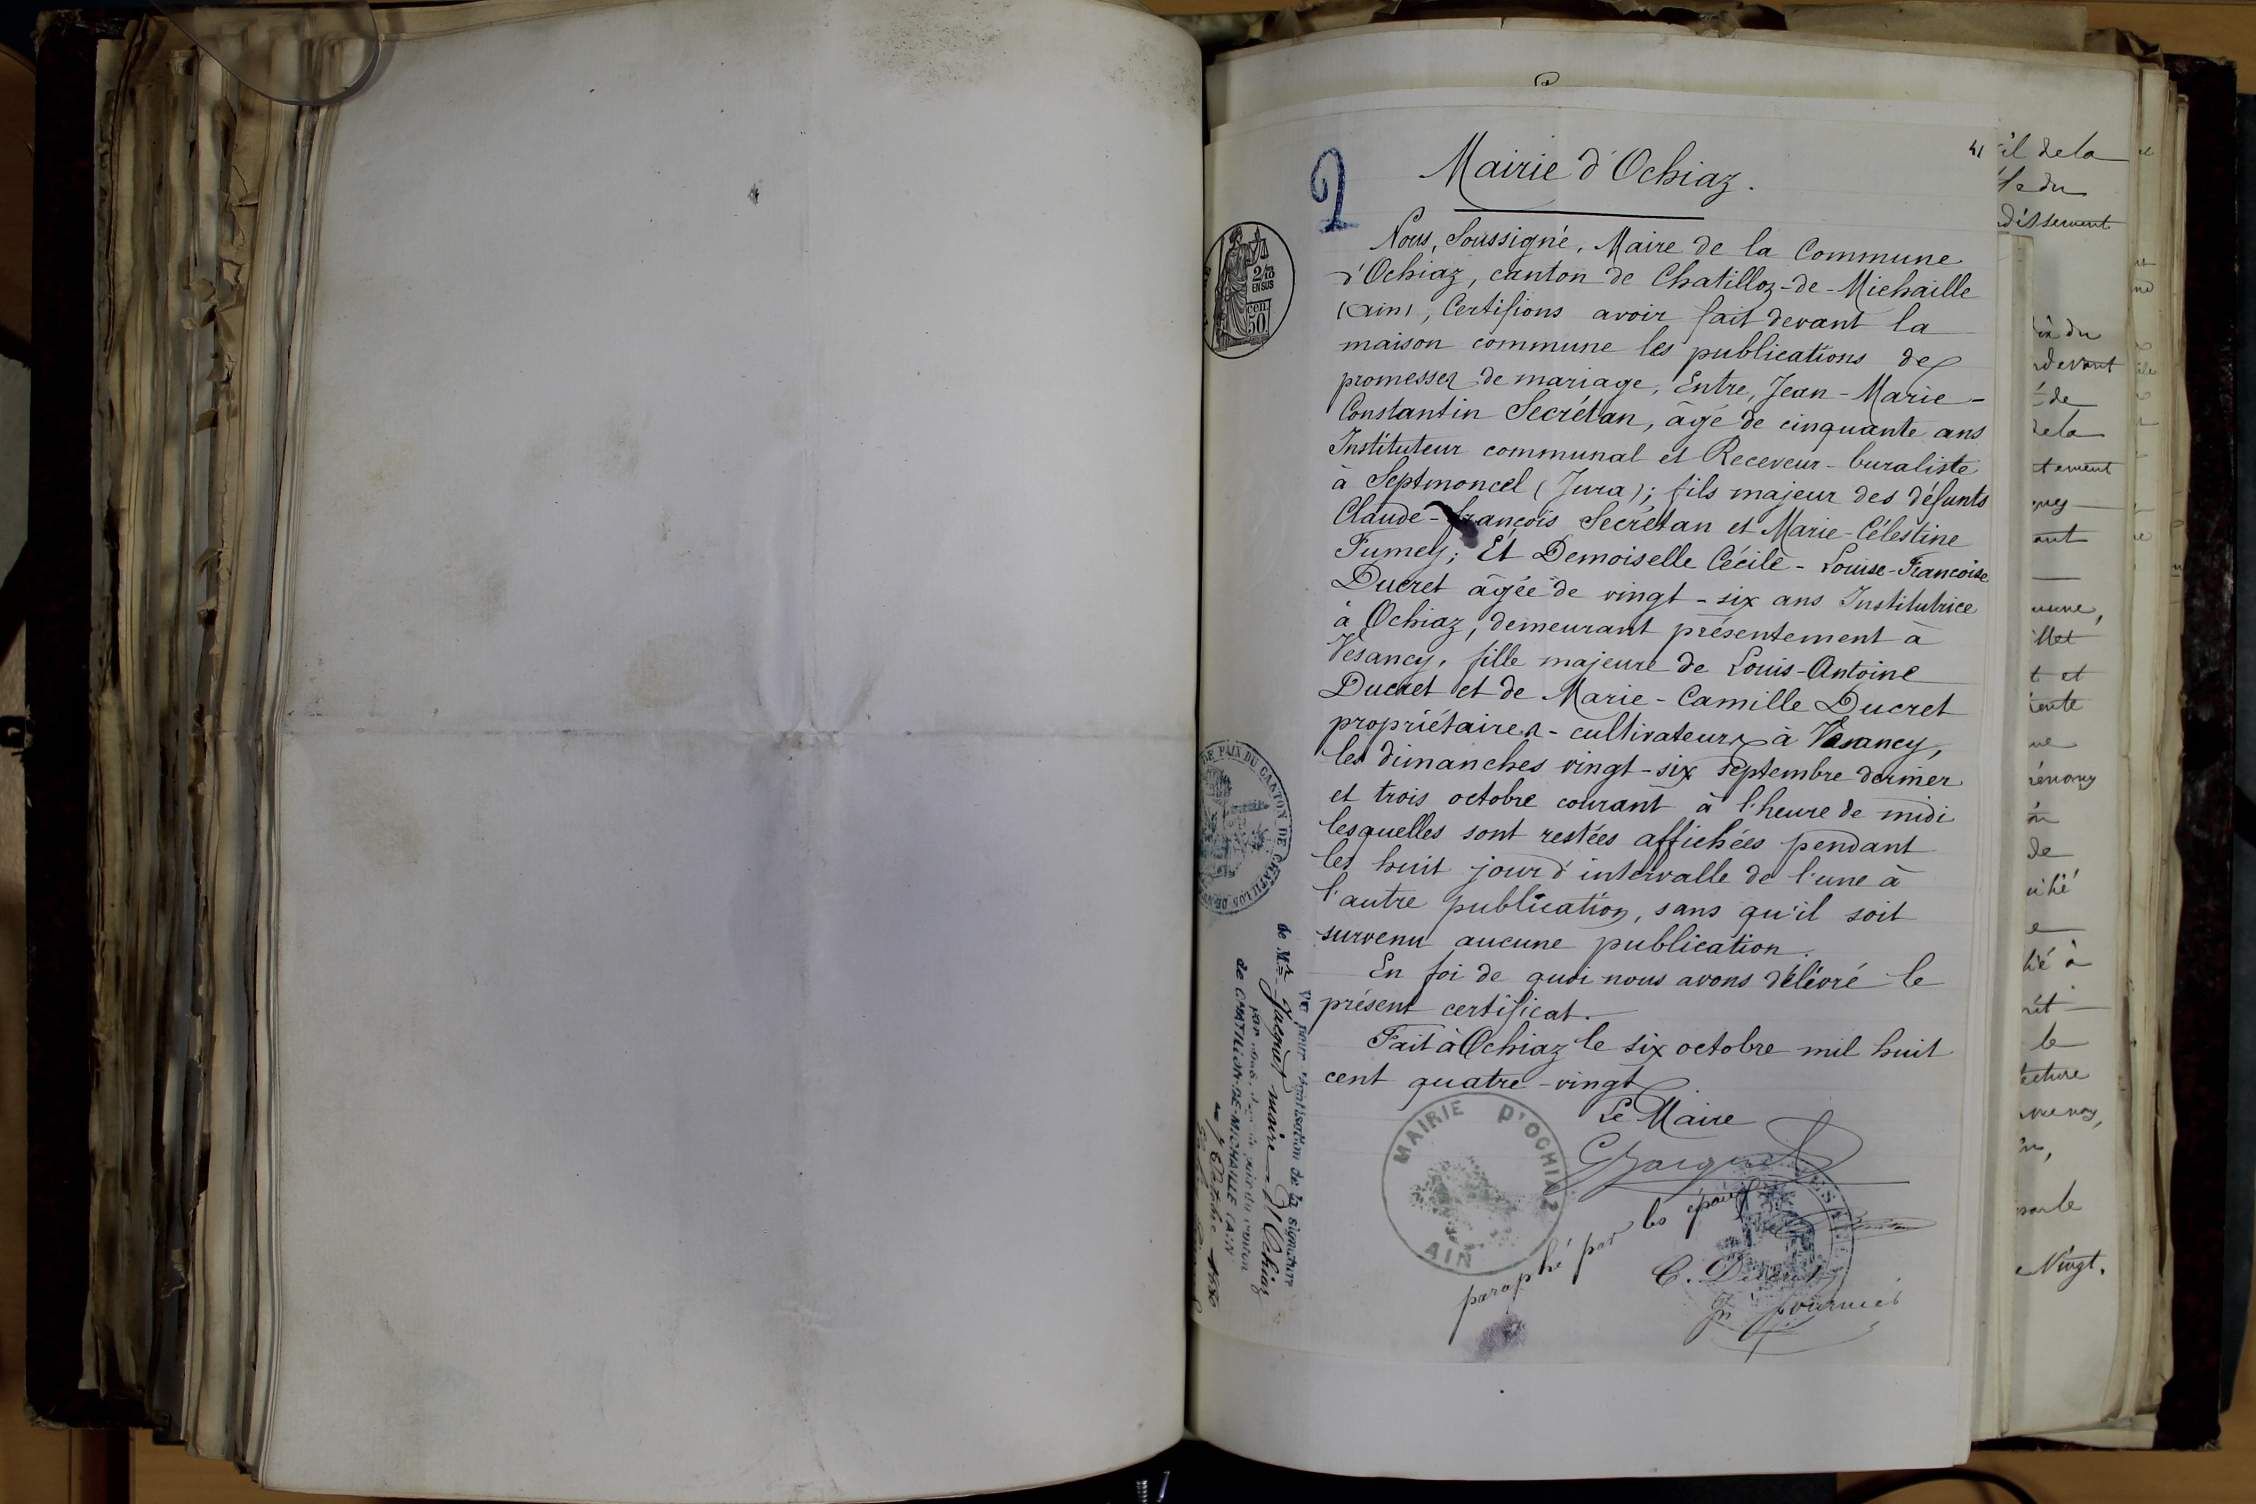 2
Mairie d'Ochiaz.
Nous, soussigné, Maire de la Commune
d'Ochiaz, canton de Chatillon-de-Michaille
(Ain), Certifions avoir fait devant la
maison commune les publications de
promesses de mariage, Entre, Jean-Marie-
Constantin Secrétan, âgé de cinquante ans
Instituteur communal et Receveur-buraliste
à Septmoncel (Jura); fils majeur des défunts
Claude-François Secrétan et Marie-Célestine
Fumey; Et Demoiselle Cécile-Louise-Françoise
Ducret âgée de vingt-six ans Institutrice
à Ochiaz, demeurant présentement à
Vesancy, fille majeure de Louis-Antoine
Ducret et de Marie-Camille Ducret
propriétaires-cultivateurs à Vesancy,
les dimanches vingt-six septembre dernier
et trois octobre courant à l'heure de midi
lesquelles sont restées affichées pendant
les huit jour d'intervalle de l'une à
l'autre publication, sans qu'il soit
survenu aucune publication.
En foi de quoi nous avons délivré le
présent certificat.
Fait à Ochiaz le six octobre mil huit
cent quatre-vingt
Le Maire
MAIRIE D'OCHIAZ
AIN
paraphé par les époux
C. Ducret
2/10
EN SUS
50
cen
DE PAIX DU CANTON DE CHATILLON DE
Vu pour légalisation de la signature
de Mr Jacquet maire d'Ochiaz
par nous, juge de paix du canton
de CHATILLON-DE-MICHAILLE (AIN)
1880
41
il de la
devant
de
de la
tement
ant
t et
de
le
Vingt.